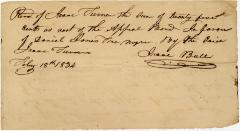 Recd of Isaac Turner the sum of twenty five
cents as cost of the Appeal Bond In favor
of Daniel Jones free negro By the said
Isaac Turner
Isaac Bull
Feby 18th 1834